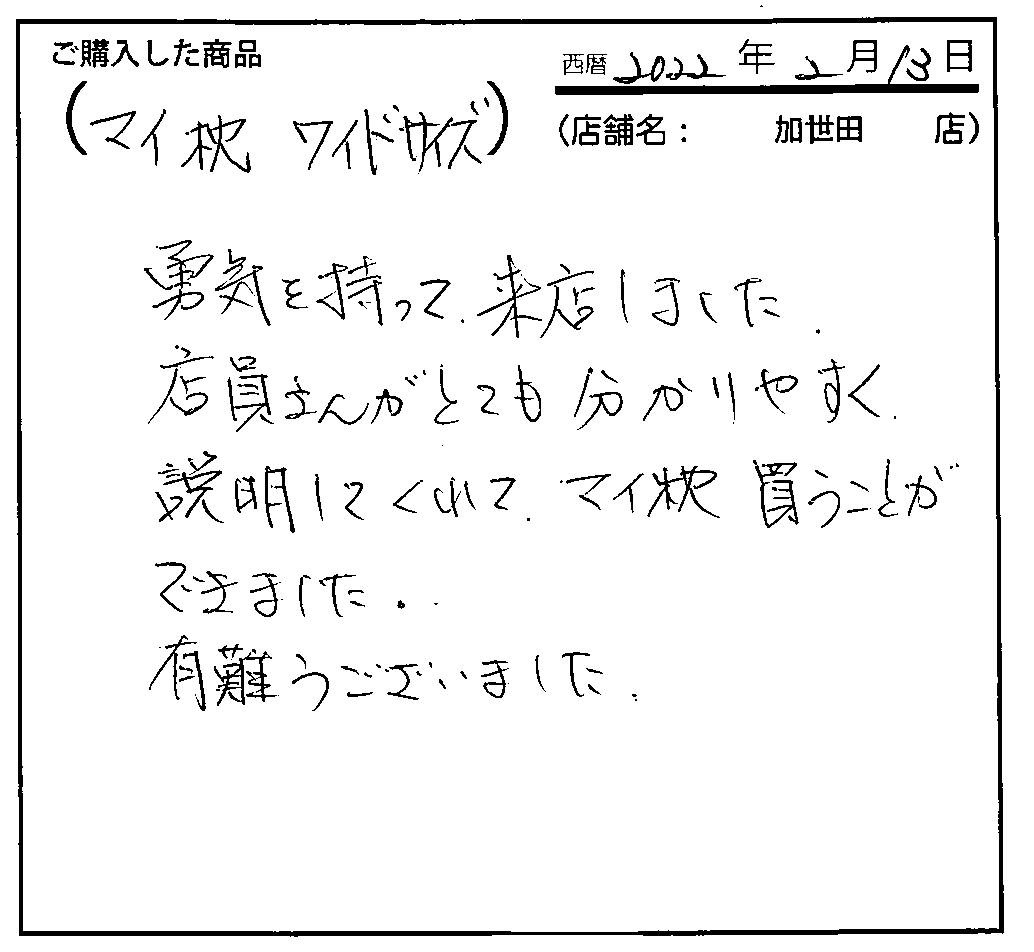 ご購入した商品
(マイ枕 ワイドサイズ)
西暦 2022 年 2 月 13 日
(店舗名： 加世田 店)
勇気を持って、来店しました。
店員さんがとても分かりやすく、
説明してくれて、マイ枕 買うことが
できました。
有難うございました。